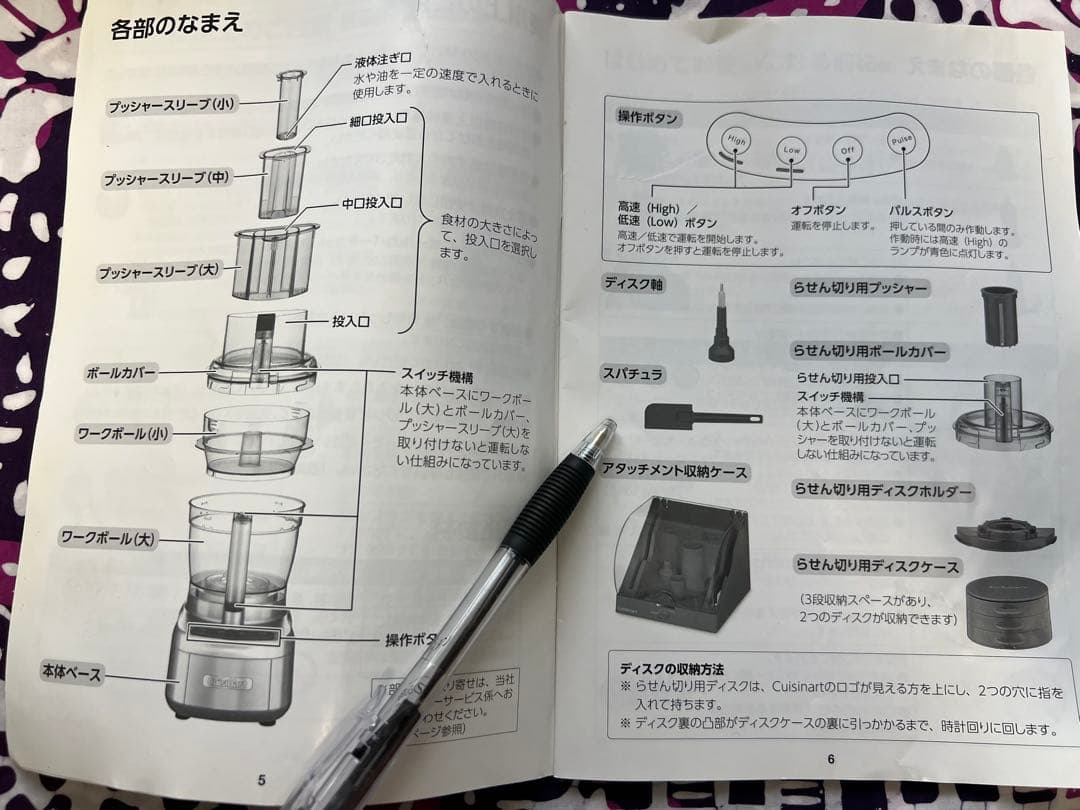 各部のなまえ
液体注ぎ口
水や油を一定の速度で入れるときに
使用します。
プッシャースリーブ(小)
細口投入口
プッシャースリーブ(中)
中口投入口
食材の大きさによっ
て、投入口を選択し
ます。
プッシャースリーブ(大)
投入口
ボールカバー
スイッチ機構
本体ベースにワークボー
ル(大)とボールカバー、
プッシャースリーブ(大)を
取り付けないと運転しな
い仕組みになっています。
ワークボール(小)
ワークボール(大)
操作ボタ
本体ベース
り寄せは、当社
ーサービス係へお
わせください。
ページ参照)
5
操作ボタン
High
Low
Off
Pulse
高速(High)/
低速(Low)ボタン
高速/低速で運転を開始します。
オフボタンを押すと運転を停止します。
オフボタン
運転を停止します。
パルスボタン
押している間のみ作動します。
作動時には高速(High)の
ランプが青色に点灯します。
ディスク軸
らせん切り用プッシャー
らせん切り用ボールカバー
らせん切り用投入口
スイッチ機構
本体ベースにワークボール
(大)とボールカバー、プッ
シャーを取り付けないと運転
しない仕組みになっています。
スパチュラ
アタッチメント収納ケース
らせん切り用ディスクホルダー
らせん切り用ディスクケース
(3段収納スペースがあり、
2つのディスクが収納できます)
ディスクの収納方法
※ らせん切り用ディスクは、Cuisinartのロゴが見える方を上にし、2つの穴に指を
入れて持ちます。
※ ディスク裏の凸部がディスクケースの裏に引っかかるまで、時計回りに回します。
6